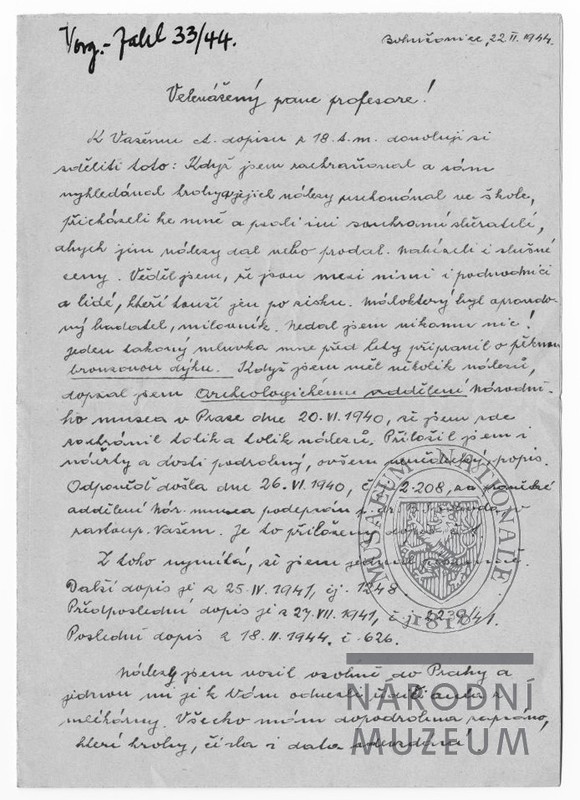 Vorg.-Zahl 33/44.
Bohušovice, 22.II.1944.
Velevážený pane profesore!
K Vašemu ct. dopisu z 18. t. m. dovoluji si
sděliti toto: Když jsem zachraňoval a sám
vyhledával hroby a jejich nálezy uschovával ve škole,
přicházeli ke mně a psali mi soukromí sběratelé,
abych jim nálezy dal nebo prodal. Nabízeli i slušné
ceny. Věděl jsem, že jsou mezi nimi i podvodníci
a lidé, kteří touží jen po zisku. Málokterý byl opravdo-
vý badatel, milovník. Nedal jsem nikomu nic!
Jeden takový mluvka mne před lety připravil o pěknou
bronzovou dýku. Když jsem měl několik nálezů,
dopsal jsem Archeologickému oddělení Národní-
ho musea v Praze dne 20.VI.1940, že jsem zde
zachránil tolik a tolik nálezů. Přiložil jsem i
náčrty a dosti podrobný, ovšem popis.
Odpověď došla dne 26.VI.1940, č. 2.208, za
oddělení nár. musea podepsán p. dr. Svoboda, v
zastoup. Vašem. Je to přiložený dopis
Z toho vysvítá, že jsem jednal
Další dopis je z 25.IV.1941, čj. 1248.
Předposlední dopis je z 27.VII.1941, č.j. 2238/41.
Poslední dopis z 18.II.1944. č. 626.
Nálezy jsem vozil osobně do Prahy a
jednou mi je k Vám odvezli auta z
mlékárny. Všecko mám dopodrobna zapsáno,
které hroby, čísla i data
MUSAEUM NATIONALE
1818
NÁRODNÍ
MUZEUM